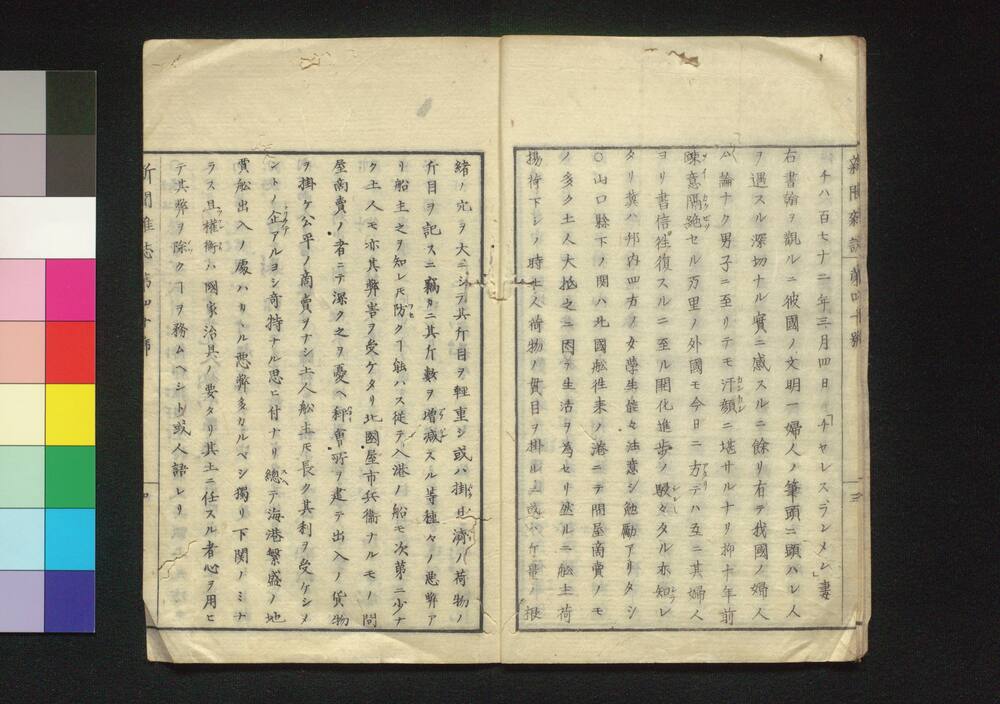 新聞雑誌 第四十號 三
一チハ百七十二年三月四日 「チヤレスランメン」妻
右書翰ヲ觀ルニ彼國ノ文明一婦人ノ筆頭ニ顕ハレ人
ヲ遇スル深切ナル實ニ感スルニ餘リ右テ我國ノ婦人
ハ論ナク男子ニ至リテモ汗顔ニ堪サルナリ抑十年前
陳意隔絶セル万里ノ外國モ今日ニ方テハ互ニ其婦人
ヨリ書信徃復スルニ至ル開化進歩ノ駸々タル亦知レ
タリ冀ハ邦内四方ノ女學生能々注意シ勉勵アリタシ
○山口縣下ノ関ハ北國舩徃来ノ港ニテ問屋商賣ノモ
ノ多ク土人大抵之ニ因テ生活ヲ為セリ然ルニ舩主荷
揚荷下シノ時土人荷物ノ貫目ヲ掛ルニ或ハケ量ノ根
緒ノ穴ヲ大ニシテ其斤目ヲ軽重シ或ハ掛ケ濟ノ荷物ノ
斤目ヲ記スニ竊カニ其斤數ヲ増減スル等種々ノ悪弊ア
リ船主之ヲ知レ𪜈防クヿ能ハス從テ入港ノ船モ次第ニ少ナ
ク土人モ亦其弊害ヲ受ケタリ北國屋市兵衞ナルモノ問
屋商賣ノ者ニテ深ク之ヲ憂ヘ秤會所ヲ建テ出入ノ貨物
ヲ掛ケ公平ノ商賣ヲナシ土人舩主𪜈長ク其利ヲ受ケシメ
ントノ企アルヨシ奇特ナル思ヒ付ナリ總テ海港繁盛ノ地
賈舩出入ノ處ハカヽル悪弊多カルベシ獨リ下関ノミナ
ラス且權衡ハ國家治具ノ要タリ其土ニ任スル者心ヲ用ヒ
テ其弊ヲ除クヿヲ務ムヘシト或人語レリ
新聞雑志 第四十號 四